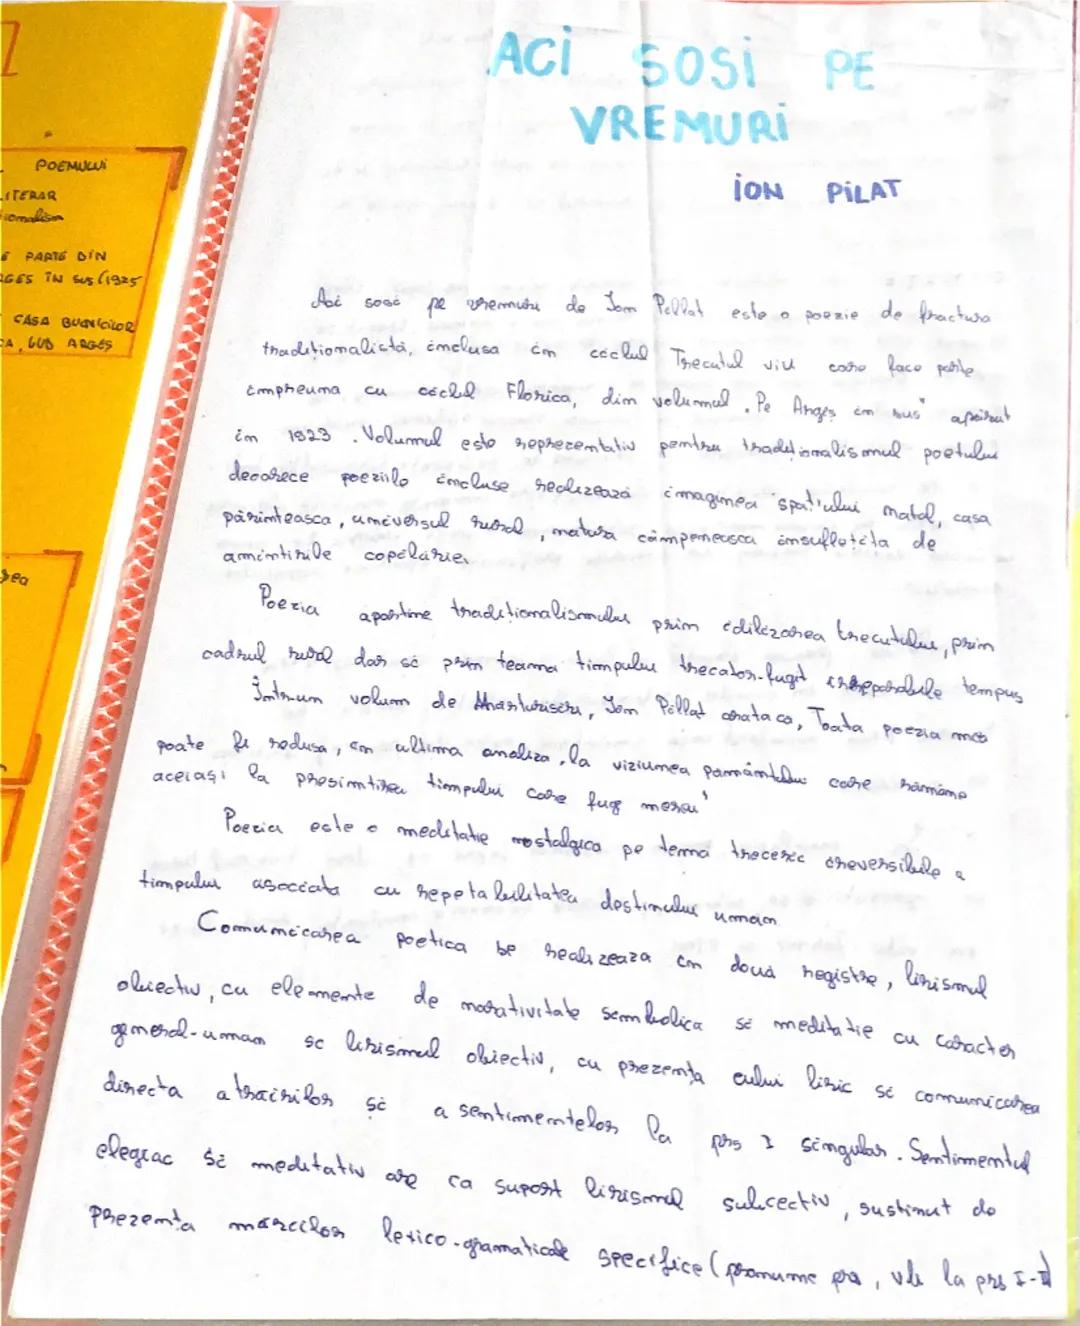 POEMULUI
LITERAR
ionalism
E PARTE DIN
RGES ÎN SUS (1925
CASA BUNICILOR
CA, JUD ARGES
ACI SOSI PE
VREMURI
ION PILAT
Aci sosi pe vremuri de Ion Pillat este o poezie de fractura
traditionalista, inclusa in ciclul Trecutul viu care face parte
impreuma cu ciclul Florica, din volumul "Pe Argeș in sus" aparut
in 1923. Volumul este reprezentativ pentru traditionalismul poetului
deoarece poeziile incluse realizează imaginea spațiului natal, casa
părintească, universul rural, natura câmpenească insuflețita de
amintirile copilăriei.
Poezia apartine traditionalismului prin idilizarea trecutului, prin
cadrul rural dar si prin teama timpului trecator-fugit irreparabile tempus
Intr-un volum de Marturisiri, Ion Pillat arata ca, Toata poezia mea
poate fi redusa, in ultima analiza, la viziunea pamântului care rămâne
aceiași la presimtirea timpului care fuge mereu"
Poezia este o meditatie nostalgica pe tema trecerii ireversibile a
timpului asociata cu repetabilitatea destinului uman
Comunicarea poetica se realizeaza in două registre, lirismul
obiectiv, cu elemente de narativitate simbolica si meditatie cu caracter
general-uman si lirismul obiectiv, cu prezența eului liric si comunicarea
directa a trairilor si a sentimentelor la prs I singular. Sentimentul
elegiac si meditativ are ca suport lirismul subiectiv, sustinut de
prezența mărcilor lexico-gramaticale specifice (pronume prs, vb la prs I-II)